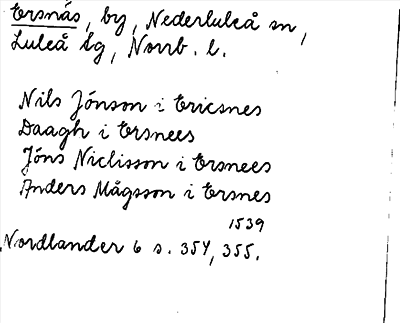 Ersnäs, by, Nederluleå sn,
Luleå tg, Norrb. l.
Nils Jónson i Ericsnes
Daagh i Ersnees
Jóns Niclisson i Ersnees
Anders Mågsson i Ersnes
1539
Nordlander 6 s. 354, 355.